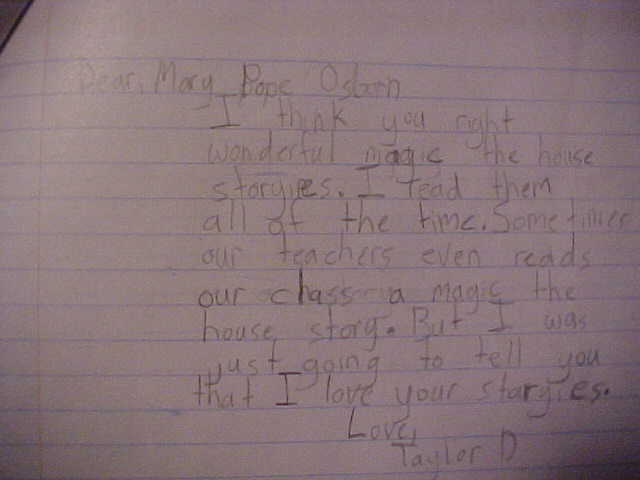 Dear, Mary Pope Osborn
I think you right
wonderful magic the house
storyies. I read them
all of the time. Sometimes
our teachers even reads
our chass a magic the
house story. But I was
just going to tell you
that I love your storyies.
Love,
Taylor D